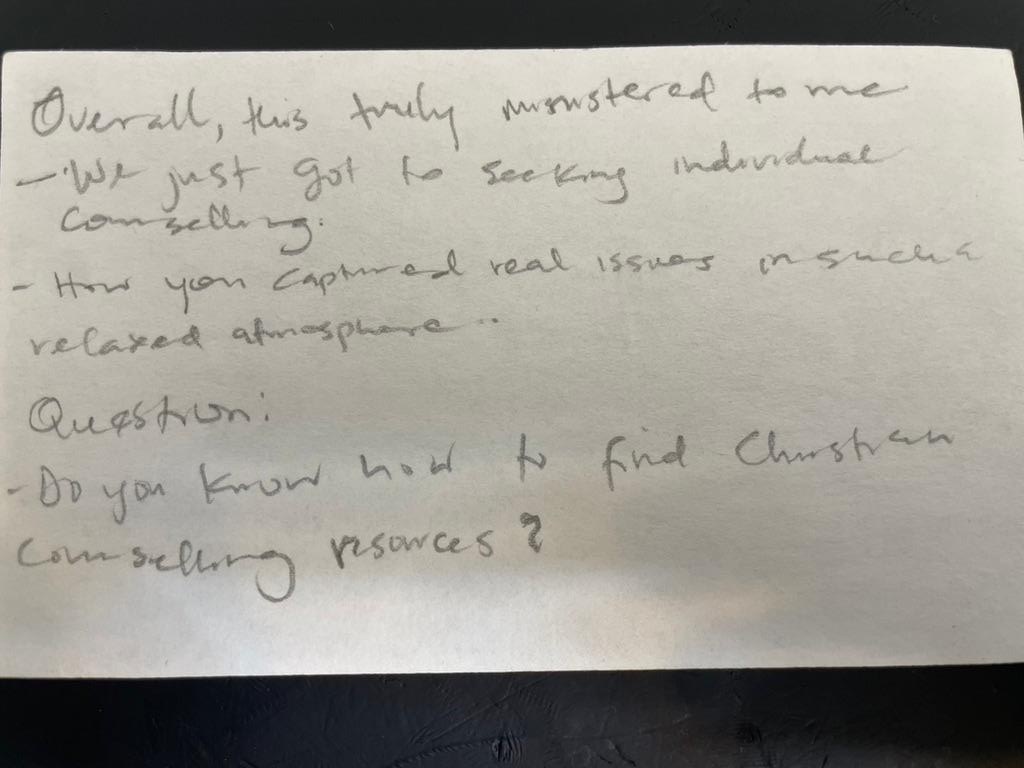 Overall, this truly ministered to me
- We just got to seeking individual
counselling.
- How you captured real issues in such a
relaxed atmosphere..
Question:
- Do you know how to find Christian
counselling resources?